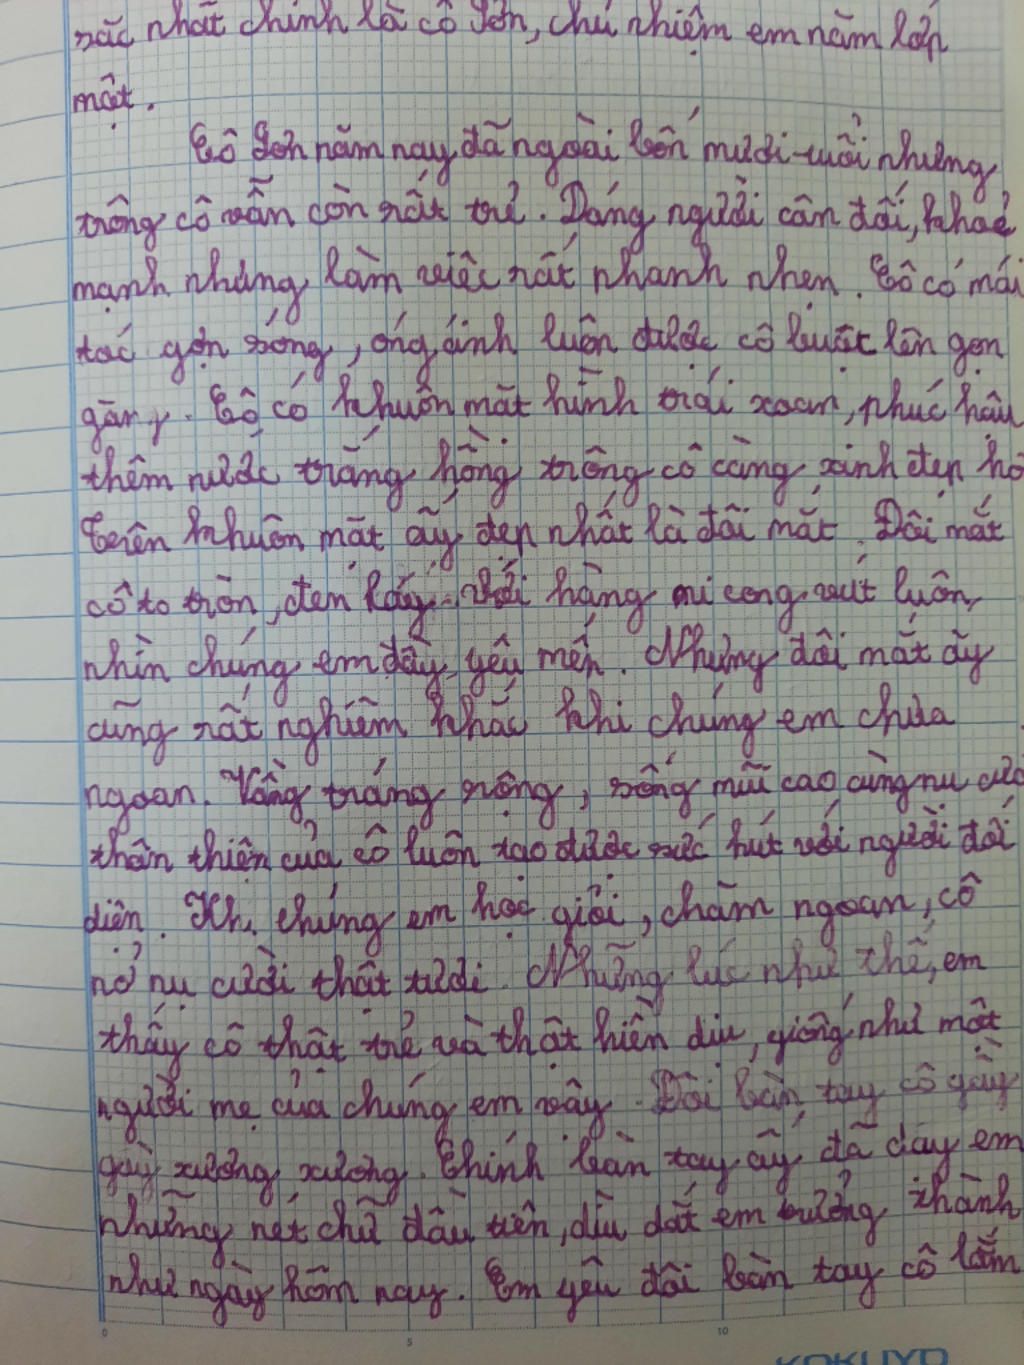 sắc nhất chính là cô Sơn, chủ nhiệm em năm lớp
một.
Cô Sơn năm nay đã ngoài bốn mươi tuổi nhưng
trông cô vẫn còn rất trẻ. Dáng người cân đối, khoẻ
mạnh nhưng làm việc rất nhanh nhẹn. Cô có mái
tóc gợn sóng, óng ánh luôn được cô buộc lên gọn
gàng. Cô có khuôn mặt hình trái xoan, phúc hậu
thêm nước trắng hồng trông cô càng xinh đẹp hơ
Trên khuôn mặt ấy đẹp nhất là đôi mắt. Đôi mắt
cô to tròn, đen láy với hàng mi cong vút luôn
nhìn chúng em đầy yêu mến. Nhưng đôi mắt ấy
cũng rất nghiêm khắc khi chúng em chưa
ngoan. Vầng tráng rộng, sống mũi cao cùng nụ cườ
thân thiện của cô luôn tạo được sức hút với người đối
diện. Khi chúng em học giỏi, chăm ngoan, cô
nở nụ cười thật tươi. Những lúc như thế, em
thấy cô thật trẻ và thật hiền dịu, giống như một
người mẹ của chúng em vậy. Đôi bàn tay cô gầy
gầy xương xương. Chính bàn tay ấy đã dạy em
những nét chữ đầu tiên, dìu dắt em trưởng thành
như ngày hôm nay. Em yêu đôi bàn tay cô lắm
0 5 10
KOKUYO